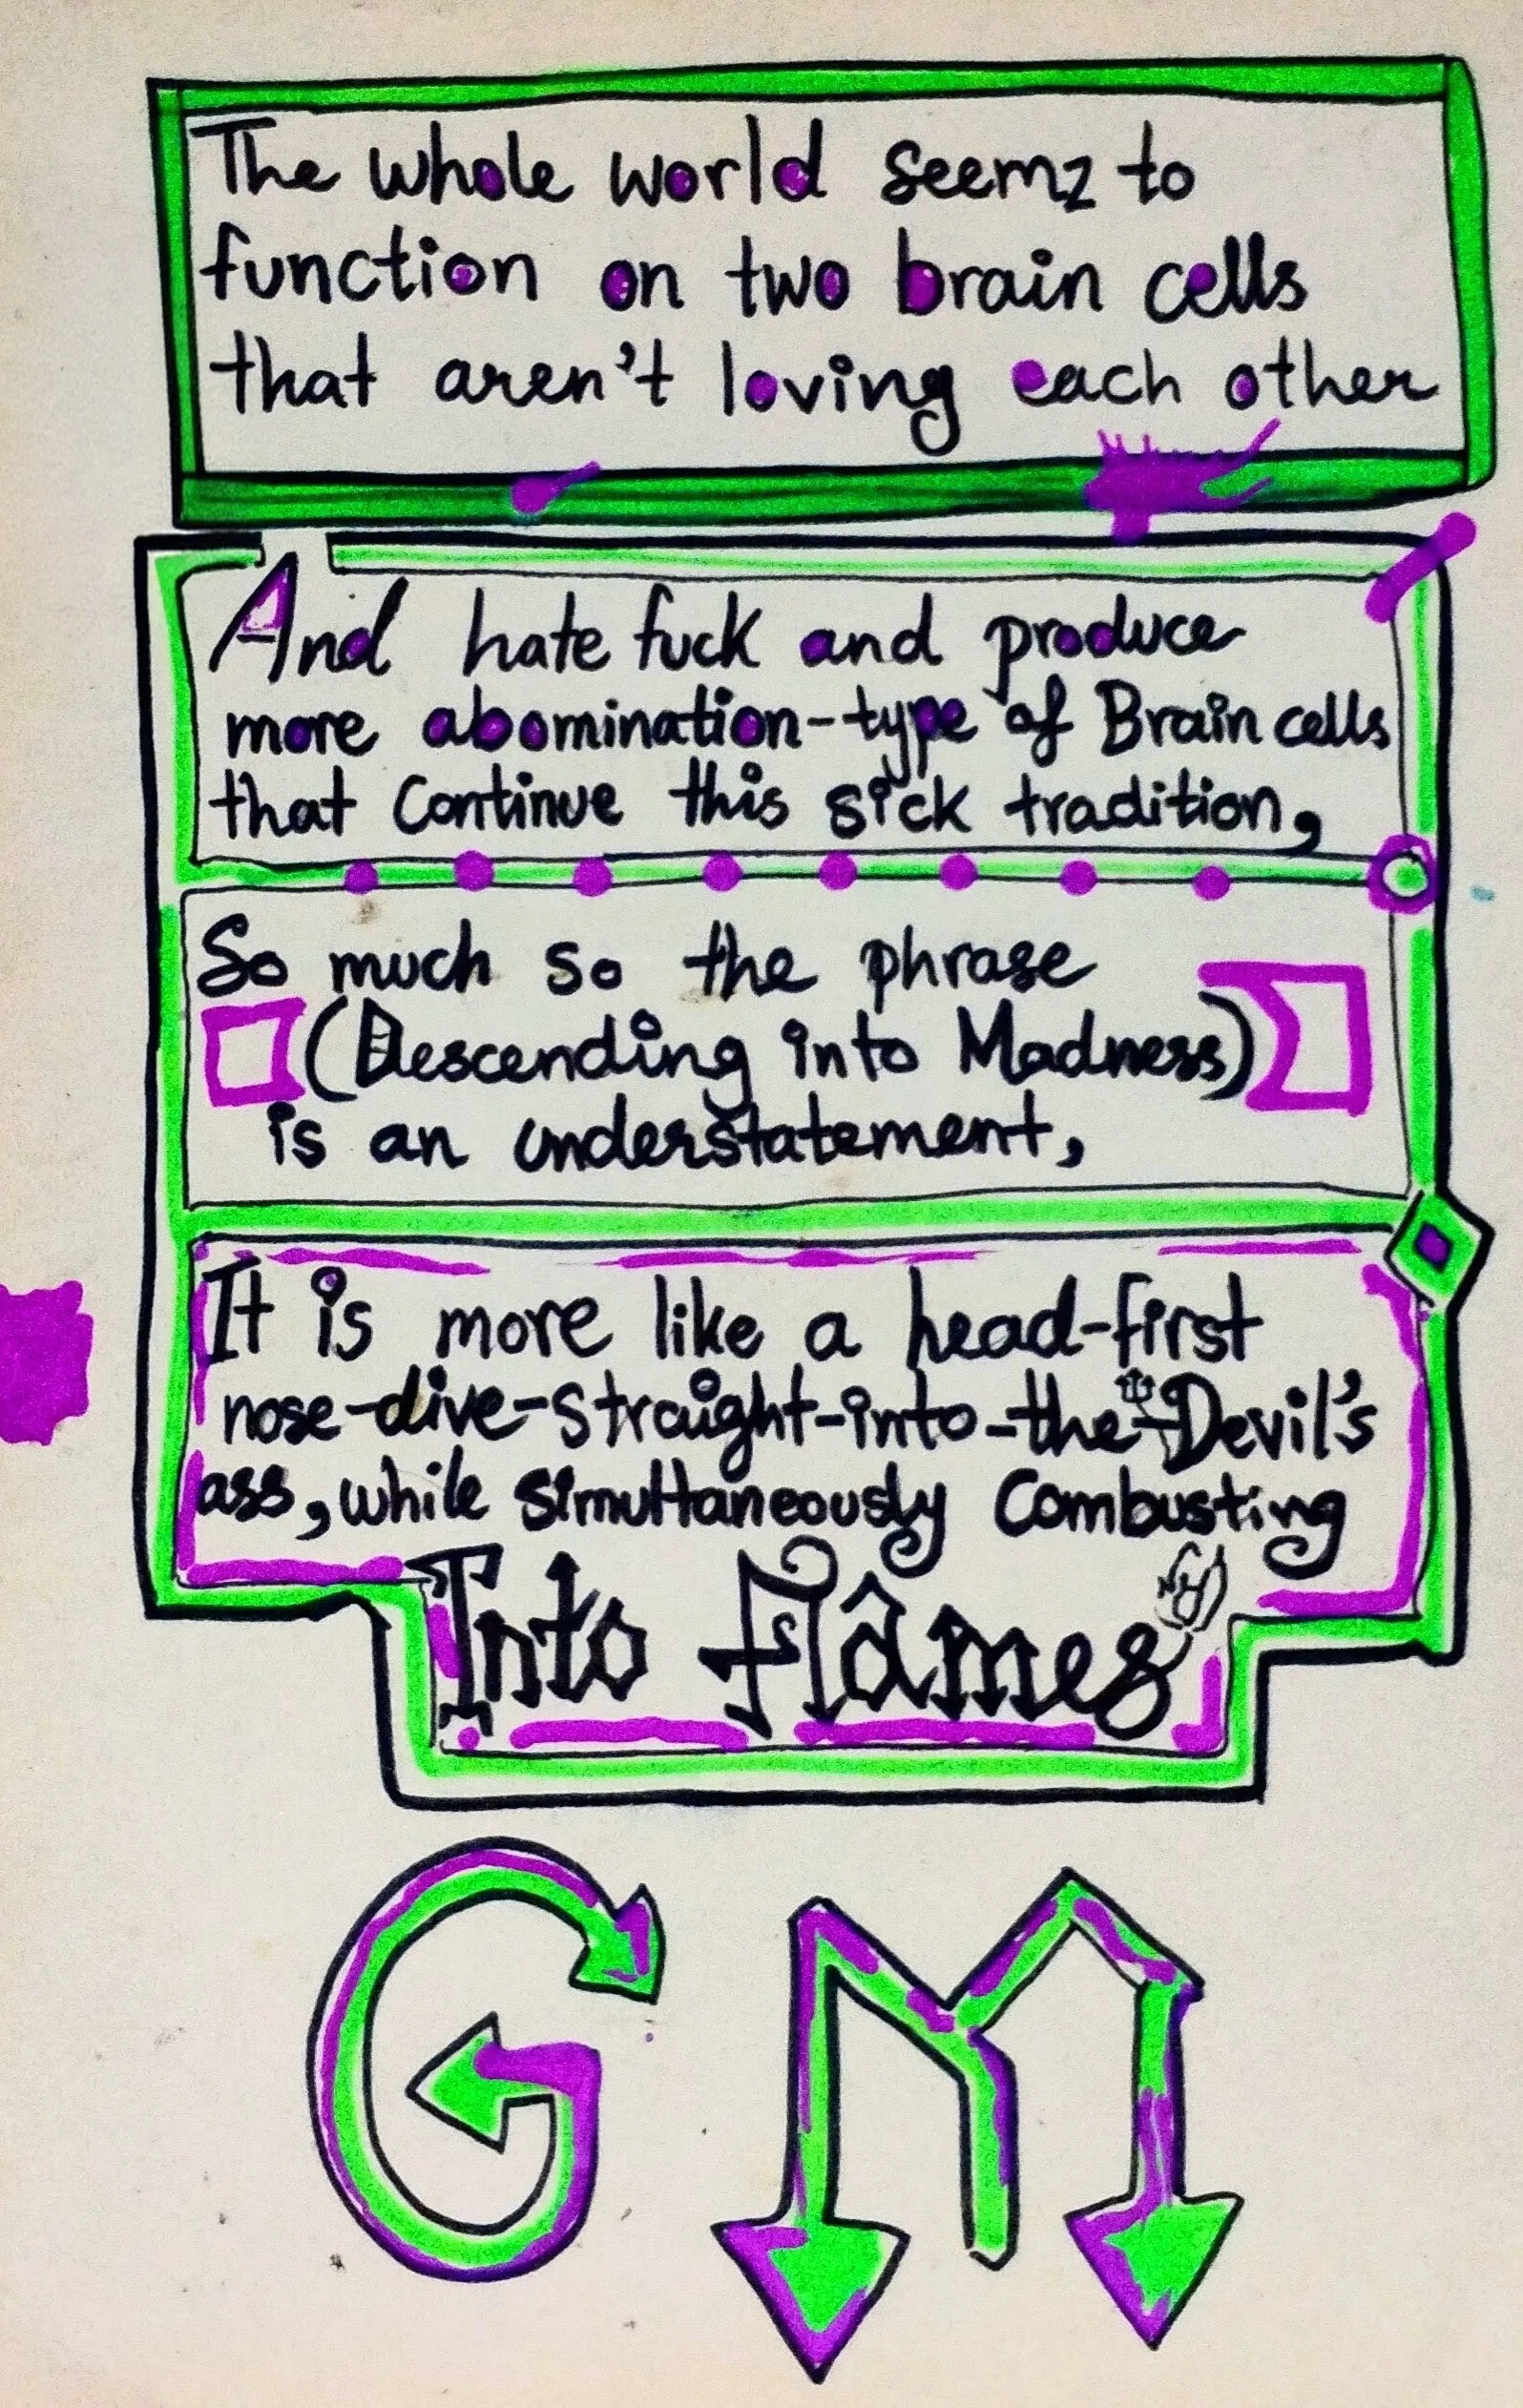 The whole world seemz to
function on two brain cells
that aren't loving each other
And hate fuck and produce
more abomination-type of Brain cells
that Continue this sick tradition,
So much so the phrase
(Descending into Madness)
is an understatement,
It is more like a head-first
nose-dive-straight-into-the-Devil's
ass, while simultaneously Combusting
Into Flâmes
GM